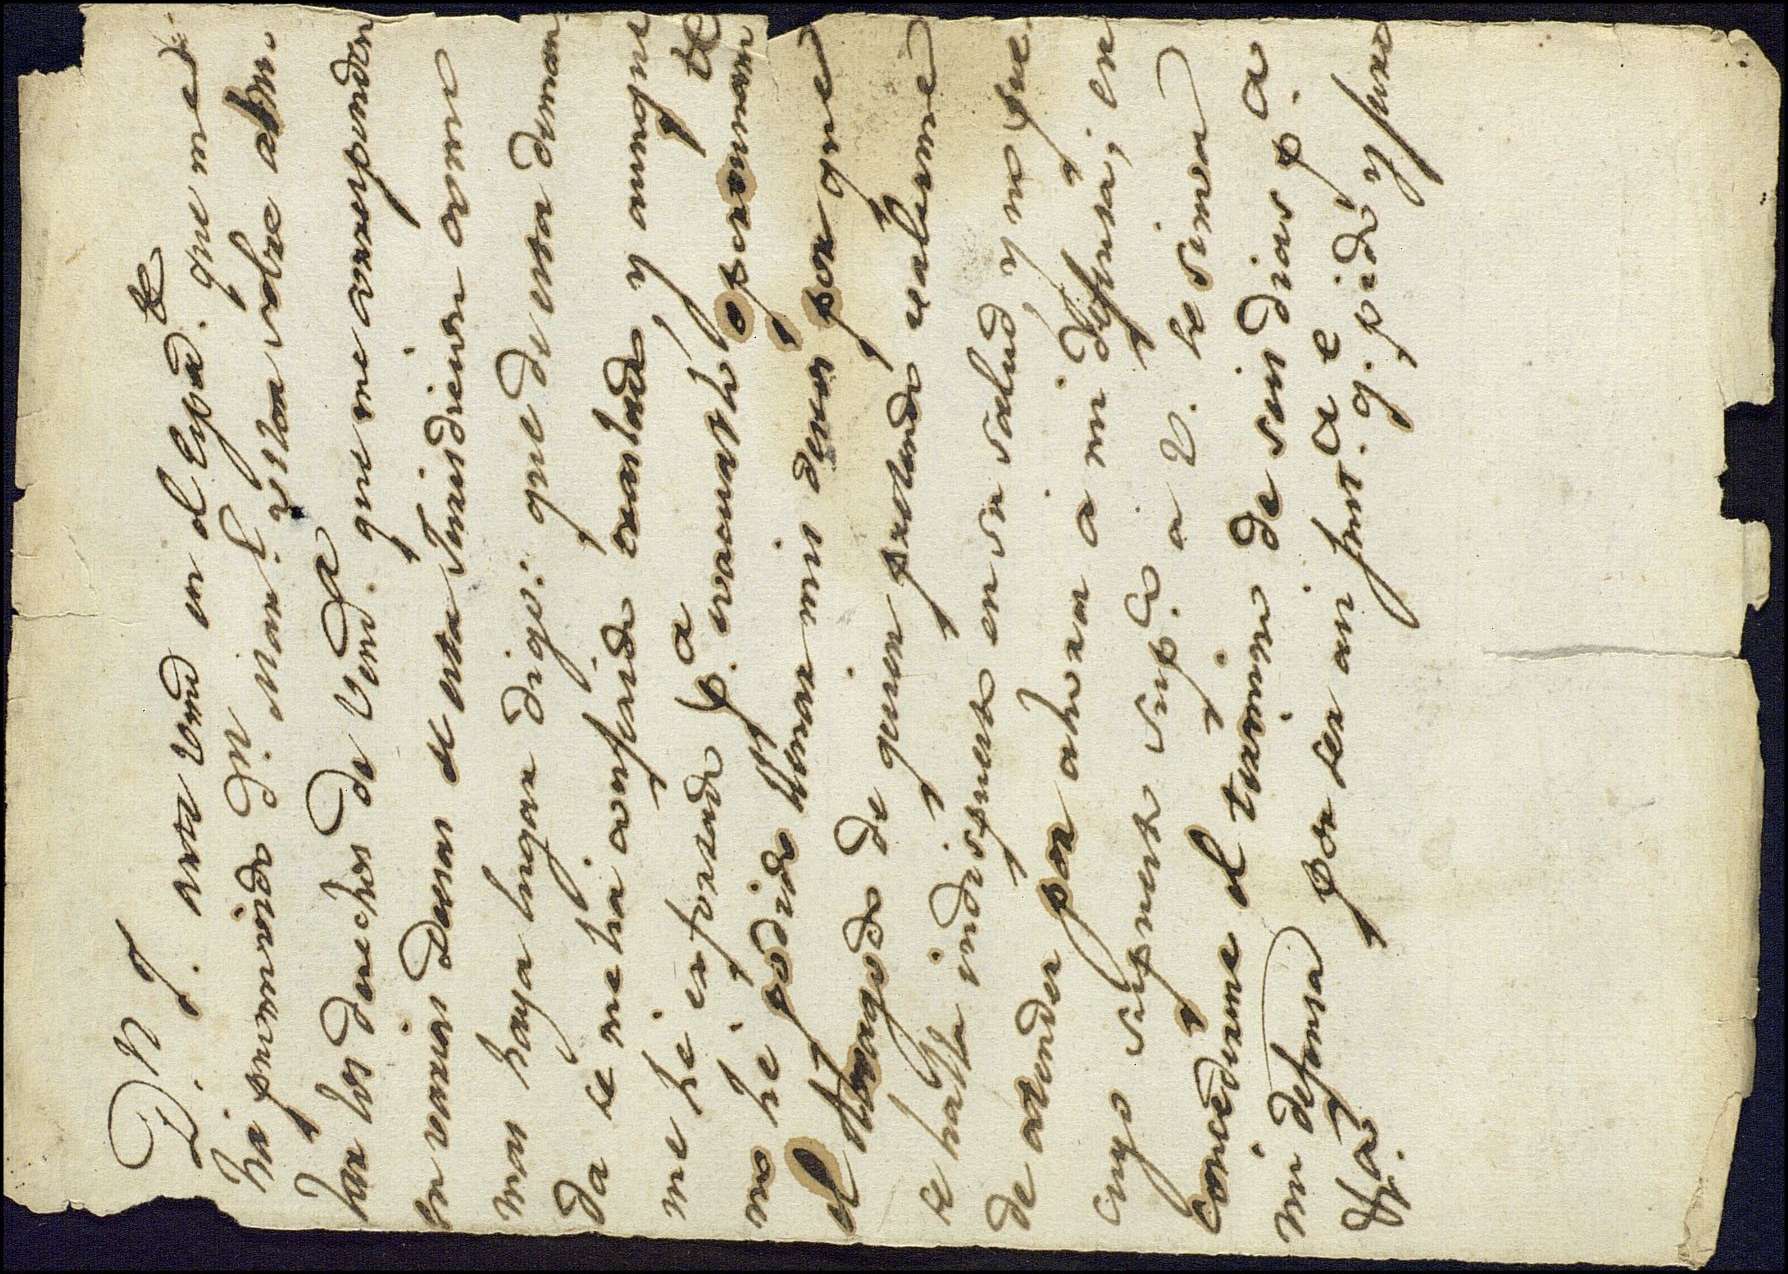 D. N. J. ante Vmd en el Exped.te que me
ha promovido Dn. Man.l sobre abm
har los derechos de Vend.a que me corresponden
en varias Deesas de esta Jurisdicion como
mas haya lugar digo: que de esta deman
da se me ha conferido traslado, y aunque
me he esforzado p.a evacuarlo oportunam.te
no he podido llenar mis deseos por que
el Abogado de quien pretendo valerme
se halla indispuesto en su salud, y no pue
de atender por ahora a mi defensa; en
cuyo supuesto sup.co a V. se sirva
concederme el termino de seis dias p.a
mi defensa por ser asi just.a q. pido y juro